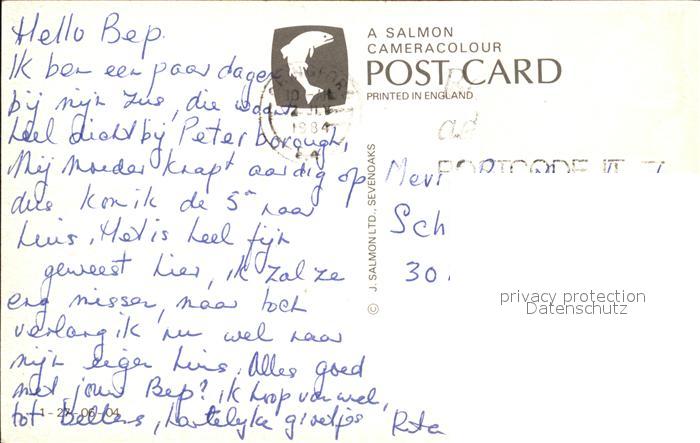 Hello Bep.
Ik ben een paar dagen
bij mijn zus, die woont
heel dichtbij Peterborough,
Mij moeder knapt aardig op
dus kom ik de 5e naar
huis. Het is heel fijn
geweest hier, ik zal ze
erg missen, maar toch
verlang ik nu wel naar
mijn eigen huis. Alles goed
met jouw Bep? ik hoop van wel,
tot bellens, hartelijke groetjes Rita
A SALMON
CAMERACOLOUR
POST CARD
PRINTED IN ENGLAND
1984
POSTCODE IT
© J. SALMON LTD., SEVENOAKS
Mevr
Sch
30.
privacy protection
Datenschutz
1-27-06-04